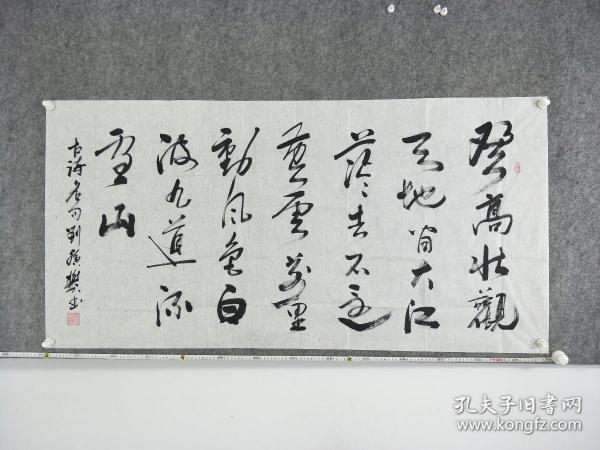 登高壮觀
天地间大江
茫茫去不還
黄雲万里
動風色白
波九道流
雪山
古詩名句劉 樊書
孔夫子旧书网
www.kongfz.com